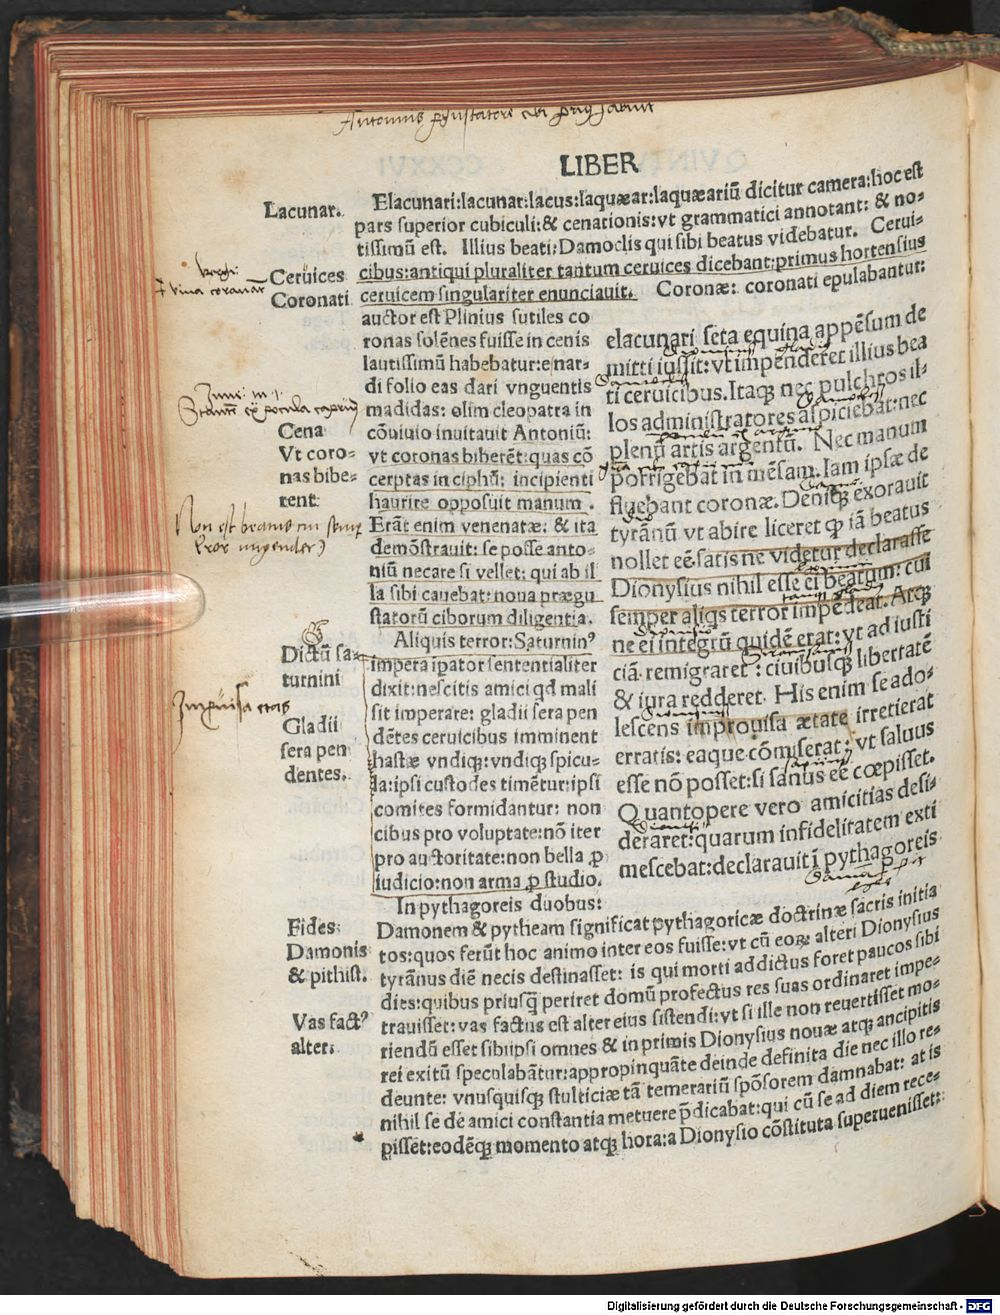 LIBER
Lacunar.
Elacunari:lacunar:lacus:laquæar:laquæariũ dicitur camera:hoc est
pars superior cubiculi:& cenationis:vt grammatici annotant: & no-
tissimũ est. Illius beati:Damoclis qui sibi beatus videbatur. Cerui-
Ceruices
cibus:antiqui pluraliter tantum ceruices dicebant:primus hortensius
Coronati
ceruicem singulariter enunciauit. Coronæ: coronati epulabantur:
auctor est Plinius sutiles co
ronas solẽnes fuisse in cenis
lautissimũ habebatur:e nar-
di folio eas dari vnguentis
madidas: olim cleopatra in
cõuiuio inuitauit Antoniũ:
vt coronas biberẽt:quas cõ
cerptas in ciphũ: incipienti
haurire opposuit manum.
Erãt enim venenatæ: & ita
demõstrauit: se posse anto-
niũ necare si vellet: qui ab il
la sibi cauebat: noua prægu
statorũ ciborum diligentia.
Cena
Vt coro-
nas bibe-
rent
Aliquis terror:Saturninꝰ
impera ipator sententialiter
dixit:nescitis amici qd mali
sit imperare: gladii sera pen
dẽtes ceruicibus imminent
hastæ vndiq;: vndiq; spicu-
la:ipsi custodes timẽtur:ipsi
comites formidantur: non
cibus pro voluptate:nõ iter
pro auctoritate:non bella ꝑ
iudicio:non arma ꝑ studio.
Dictũ sa-
turnini
Gladii
sera pen
dentes.
elacunari seta equina appẽsum de
mitti iussit: vt impenderet illius bea
ti ceruicibus. Itaq; nec pulchros il-
los administratores aspiciebat:nec
plenũ artis argentũ. Nec manum
porrigebat in mẽsam. Iam ipsæ de
fluebant coronæ. Deniq; exorauit
tyrãnũ vt abire liceret ꝙ iã beatus
nollet eẽ.satis ne videtur declarasse
Dionysius nihil esse ei beatum: cui
semper aliqs terror impẽdeat. Atq;
ne ei integrũ quidẽ erat: vt ad iusti
ciã remigraret: ciuibusq; libertatẽ
& iura redderet. His enim se ado-
lescens improuisa ætate irretierat
erratis: eaque cõmiserat: vt saluus
esse nõ posset: si sanus eẽ cœpisset.
Quantopere vero amicitias desi-
deraret: quarum infidelitatem exti
mescebat: declarauit ĩ pythagoreis
In pythagoreis duobus:
Fides
Damonem & pytheam significat pythagoricæ doctrinæ sacris initia
Damonis
tos:quos ferũt hoc animo inter eos fuisse: vt cũ eoꝝ alteri Dionysius
& pithiæ.
tyrãnus diẽ necis destinasset: is qui morti addictus foret paucos sibi
dies: quibus priusq̃ periret domũ profectus res suas ordinaret impe-
Vas factꝰ
trauisset: vas factus est alter eius sistendi: vt si ille non reuertisset mo-
alter.
riendũ esset sibiipsi omnes & in primis Dionysius nouæ atq; ancipitis
rei exitũ speculabãtur:appropinquãte deinde definita die nec illo re-
deunte: vnusquisq; stulticiæ tã temerariũ spõsorem damnabat: at is
nihil se de amici constantia metuere p̃dicabat: qui cũ se ad diem rece-
pisset: eodẽq; momento atq; hora: a Dionysio cõstituta superuenisset:
Digitalisierung gefördert durch die Deutsche Forschungsgemeinschaft - DFG